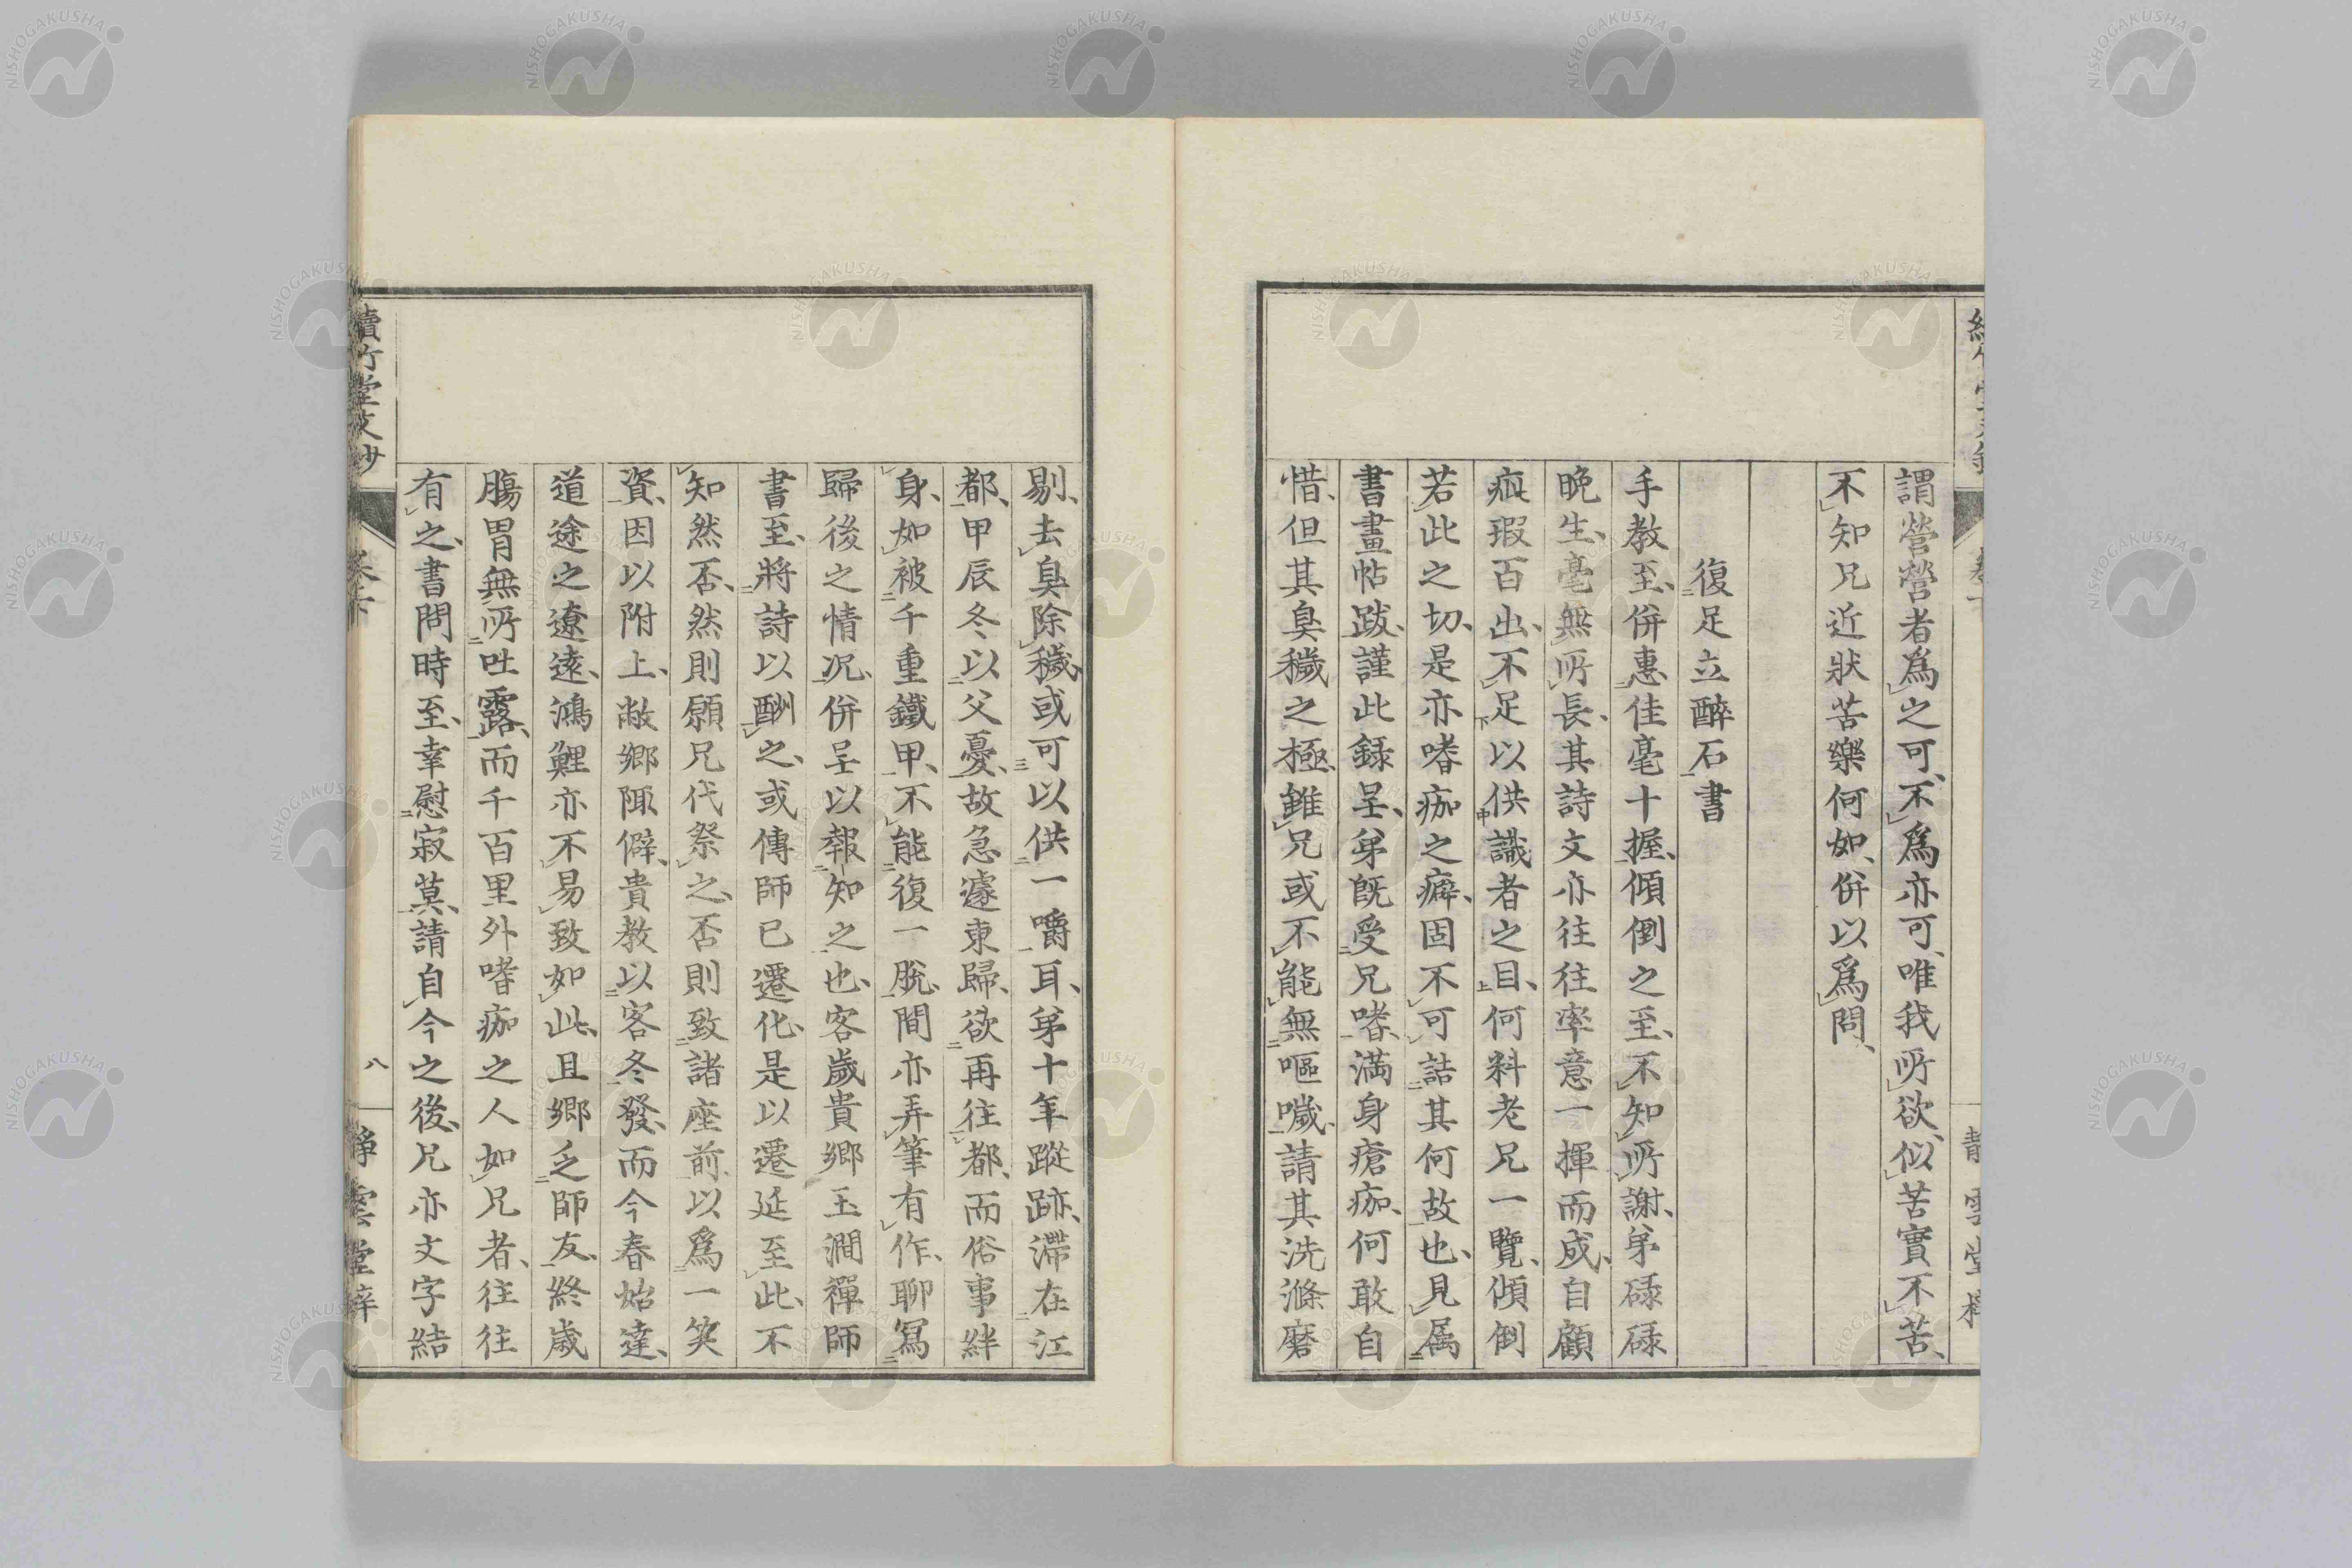 謂營營者爲之可、不爲亦可、唯我所欲、似苦實不苦、
不知兄近狀苦樂何如、併以爲問、
復足立醉石書
手教至、併惠佳毫十握、傾倒之至、不知所謝、弟碌碌
晩生、毫無所長、其詩文亦往往率意一揮而成、自顧
疵瑕百出、不足以供識者之目、何料老兄一覽、傾倒
若此之切、是亦嗜痂之癖、固不可詰其何故也、見屬
書畫帖跋、謹此錄呈、弟旣受兄嗜、滿身瘡痂、何敢自
惜、但其臭穢之極、雖兄或不能無嘔噦、請其洗滌磨
剔、去臭除穢、或可以供一嚼耳、弟十年蹤跡、滯在江
都、甲辰冬以父憂、故急遽東歸、欲再往都、而俗事絆
身、如被千重鐵甲、不能復一脫、間亦弄筆有作、聊寫
歸後之情况、併呈以報知之也、客歲貴鄉玉澗禪師
書至、將詩以酬之、或傳師已遷化、是以遷延至此、不
知然否、然則願兄代祭之、否則致諸座前、以爲一笑
資、因以附上、敝鄉陬僻、貴教以客冬發、而今春始達、
道途之遼遠、鴻鯉亦不易致如此、且鄉乏師友、終歲
腸胃無所吐露、而千百里外嗜痂之人如兄者、往往
有之、書問時至、幸慰寂莫、請自今之後、兄亦文字結
續竹堂文鈔
卷下
八
靜雲堂梓